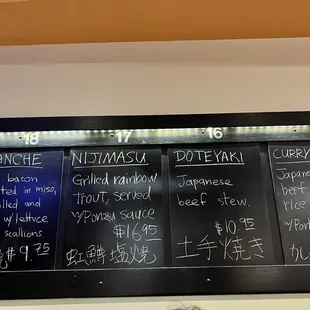 18
17
16
ANCHE
bacon
ted in miso,
lled and
w/ lettuce
scallions.
$9.75
NIJIMASU
Grilled rainbow
trout, served
w/Ponzu sauce
$16.95
虹鱒塩焼
DOTEYAKI
Japanese
beef stew.
$10.95
土手焼き
CURRY
Japane
beef
rice
w/Por
カレ